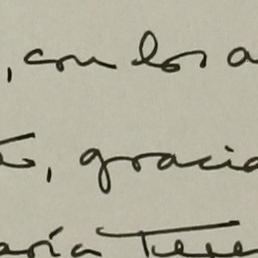 , con los a
, gracia
aría Tere